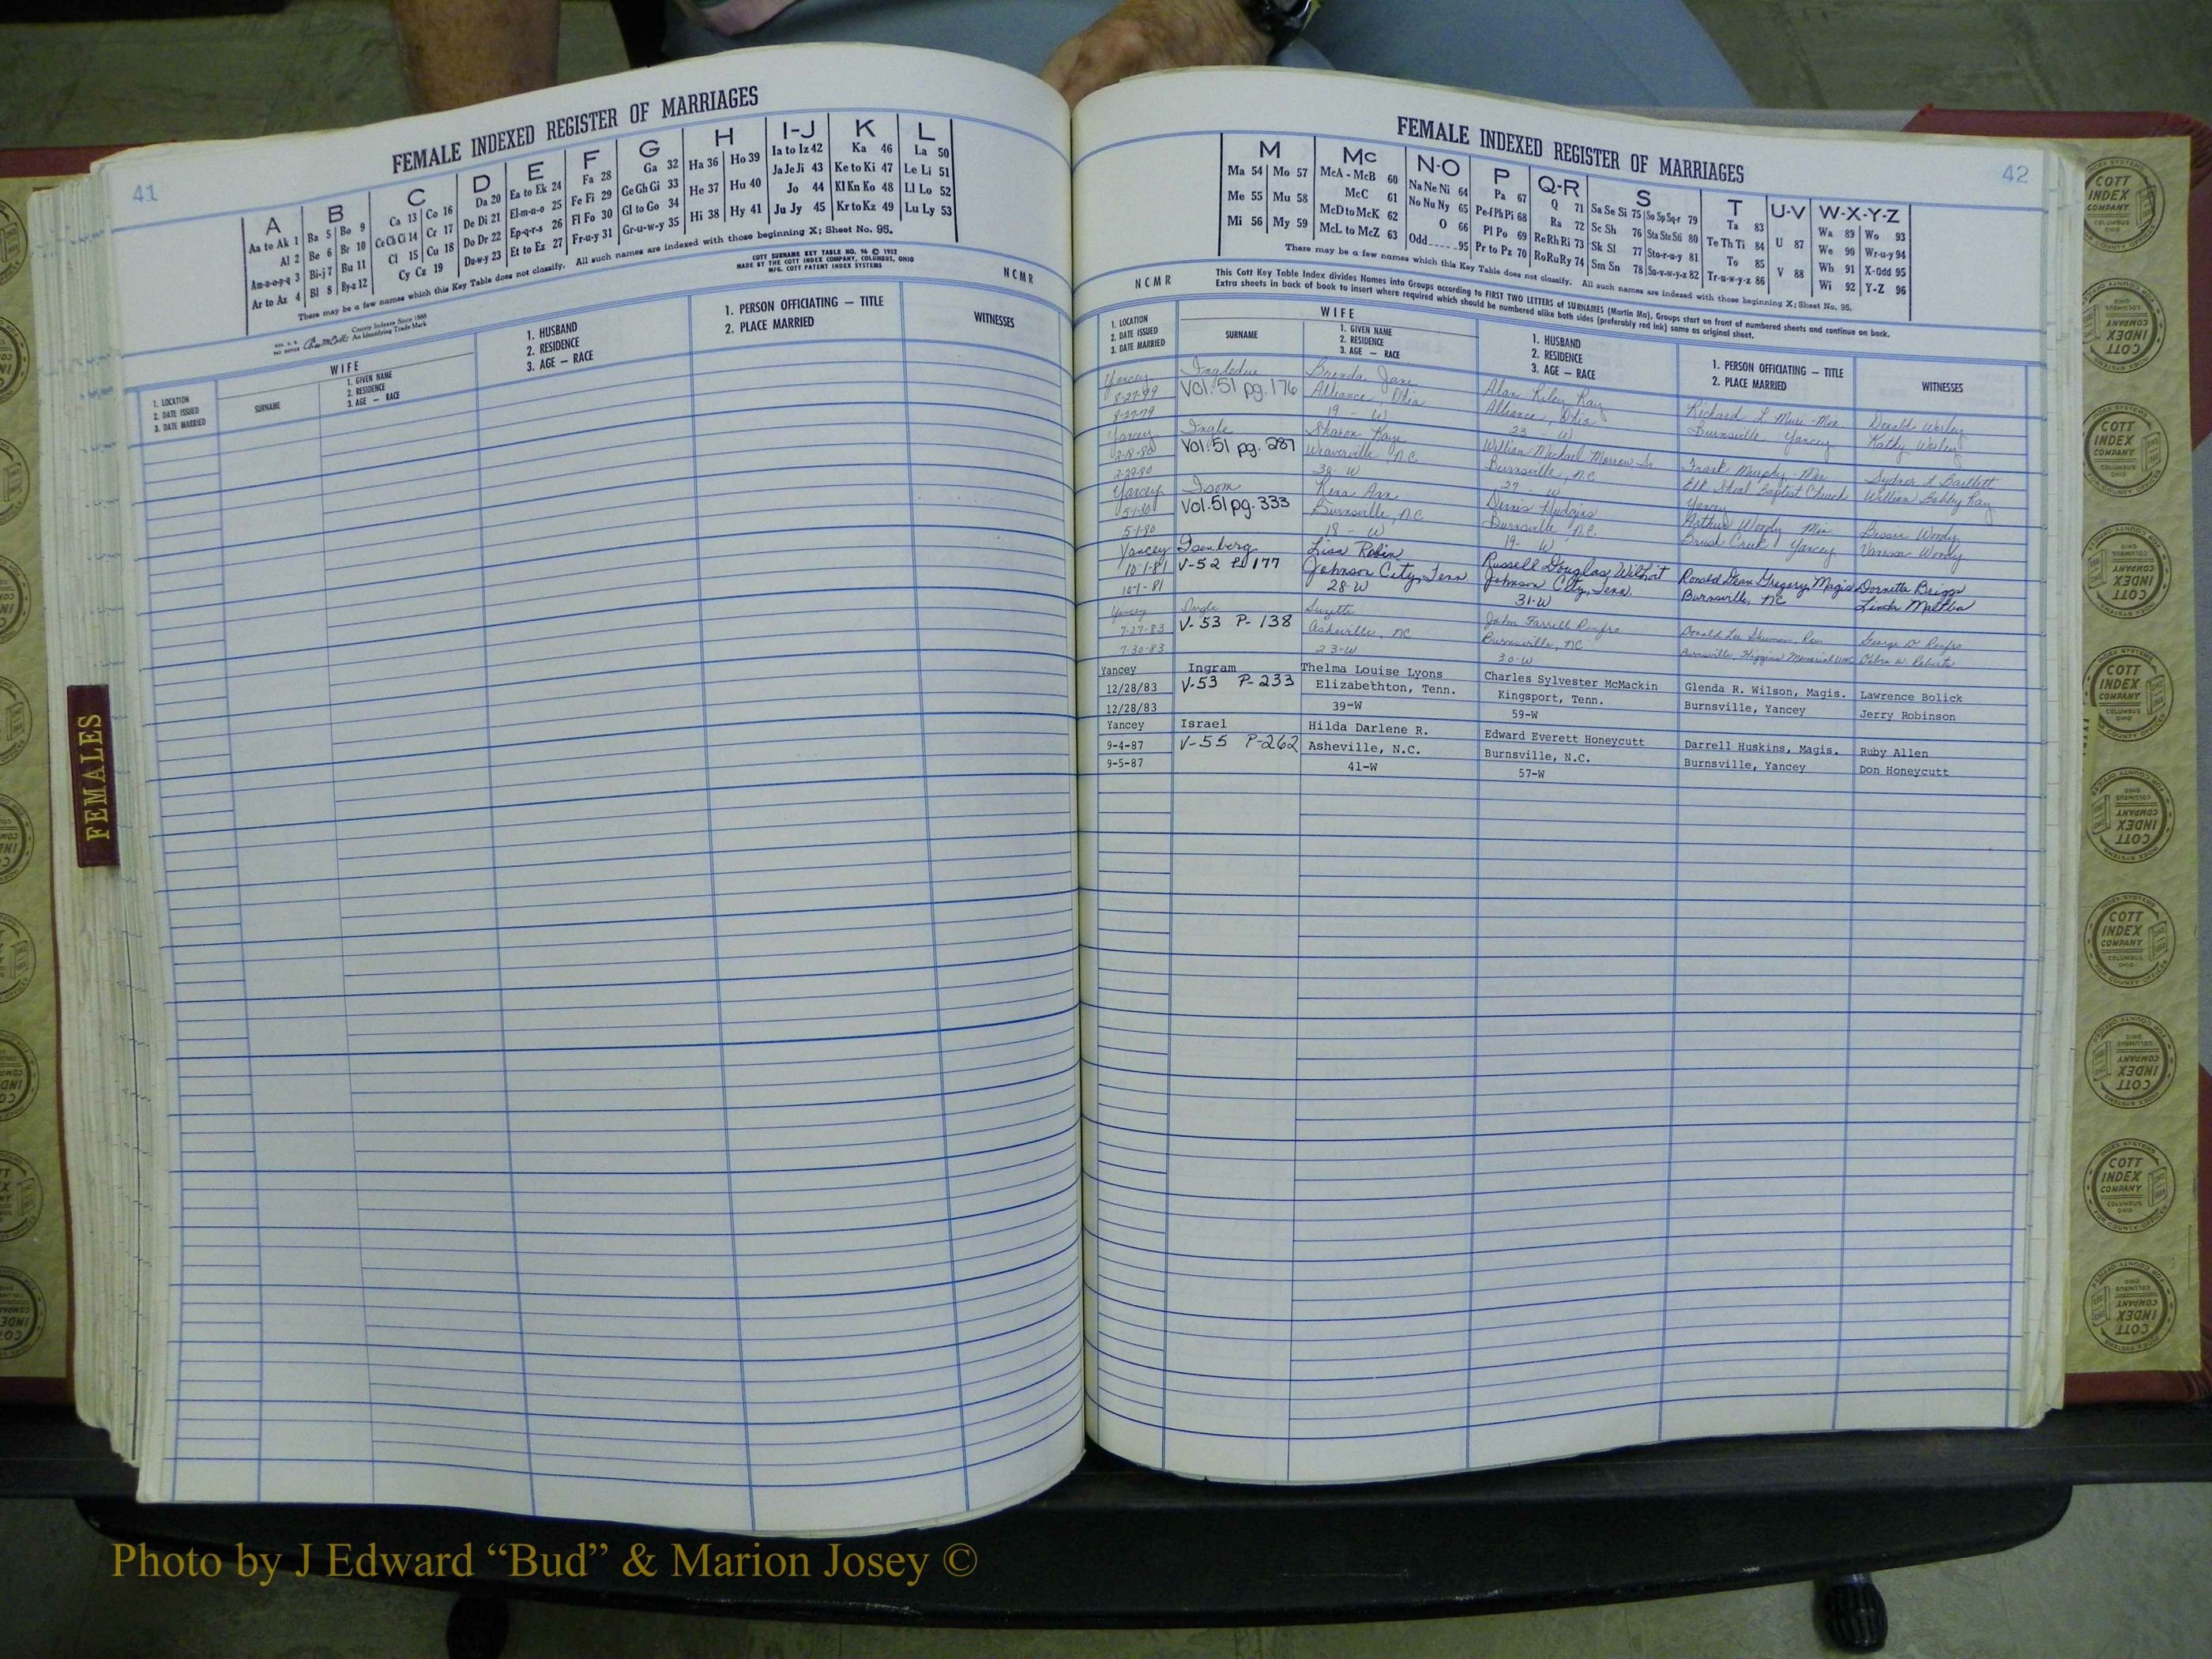 41
FEMALE INDEXED REGISTER OF MARRIAGES
A B C D E F G H I-J K L
Aa to Ak 1 Ba 5 Bo 9 Ca 13 Co 16 Da 20 Ea to Ek 24 Fa 28 Ga 32 Ha 36 Ho 39 Ia to Iz 42 Ka 46 La 50
Al 2 Be 6 Br 10 Ce Ch Ci 14 Cr 17 De Di 21 El-m-n-o 25 Fe Fi 29 Ge Gh Gi 33 He 37 Hu 40 Ja Je Ji 43 Ke to Ki 47 Le Li 51
Am-n-o-p-q 3 Bi-j 7 Bu 11 Cl 15 Cu 18 Do Dr 22 Ep-q-r-s 26 Fl Fo 30 Gl to Go 34 Hi 38 Hy 41 Jo 44 Kl Kn Ko 48 Ll Lo 52
Ar to Az 4 Bl 8 By-z 12 Cy Cz 19 Du-w-y 23 Et to Ez 27 Fr-u-y 31 Gr-u-w-y 35 Ju Jy 45 Kr to Kz 49 Lu Ly 53
There may be a few names which this Key Table does not classify. All such names are indexed with those beginning X; Sheet No. 95.
COTT SURNAME KEY TABLE NO. 96 © 1952
MADE BY THE COTT INDEX COMPANY, COLUMBUS, OHIO
MFG. COTT PATENT INDEX SYSTEMS
County Indexes Since 1888
An Identifying Trade Mark
NCMR
1. LOCATION
2. DATE ISSUED
3. DATE MARRIED
WIFE
SURNAME
1. GIVEN NAME
2. RESIDENCE
3. AGE — RACE
1. HUSBAND
2. RESIDENCE
3. AGE — RACE
1. PERSON OFFICIATING — TITLE
2. PLACE MARRIED
WITNESSES
FEMALES
FEMALE INDEXED REGISTER OF MARRIAGES
42
M Mc N-O P Q-R S T U-V W-X-Y-Z
Ma 54 Mo 57 McA - McB 60 Na Ne Ni 64 Pa 67 Q 71 Sa Se Si 75 So Sp Sq-r 79 Ta 83 Wa 89 Wo 93
Me 55 Mu 58 McC 61 No Nu Ny 65 Pe-f Ph Pi 68 Ra 72 Sc Sh 76 Sta Ste Sti 80 Te Th Ti 84 U 87 We 90 Wr-u-y 94
Mi 56 My 59 McD to McK 62 O 66 Pl Po 69 Re Rh Ri 73 Sk Sl 77 Sto-r-u-y 81 To 85 V 88 Wh 91 X-Odd 95
McL to McZ 63 Odd 95 Pr to Pz 70 Ro Ru Ry 74 Sm Sn 78 Su-v-w-y-z 82 Tr-u-w-y-z 86 Wi 92 Y-Z 96
There may be a few names which this Key Table does not classify. All such names are indexed with those beginning X; Sheet No. 95.
NCMR
This Cott Key Table Index divides Names into Groups according to FIRST TWO LETTERS of SURNAMES (Martin Ma). Groups start on front of numbered sheets and continue on back.
Extra sheets in back of book to insert where required which should be numbered alike both sides (preferably red ink) same as original sheet.
1. LOCATION
2. DATE ISSUED
3. DATE MARRIED
WIFE
SURNAME
1. GIVEN NAME
2. RESIDENCE
3. AGE — RACE
1. HUSBAND
2. RESIDENCE
3. AGE — RACE
1. PERSON OFFICIATING — TITLE
2. PLACE MARRIED
WITNESSES
Yancey Ingledue Brenda Jane Alan Riley Ray Richard L. Donald Worley
Vol. 51 pg. 176 Alliance, Ohio Alliance, Ohio Burnsville Yancey Kathy Worley
8-27-79 19 - W 23 - W
Yancey Ingle Sharon Kaye William Michael Morrow Jr. Frank Murphy - Min Sydnor L. Bartlett
2-18-80 Vol. 51 pg. 287 Weaverville N.C. Burnsville, N.C. Elk Shoal Baptist Church William Bobby Ray
2-29-80 38 - W 27 - W Yancey
Yancey Isom Rena Ann Dennis Hudgins Arthur Woody Min Bessie Woody
5-1-80 Vol. 51 pg. 333 Burnsville, N.C. Burnsville N.C. Brush Creek Yancey Woody
5-1-80 18 - W 19 - W
Yancey Isenberg Lisa Robin Russell Douglas Wilhoit Ronald Dean Gregory, Magis Dornetta Briggs
10-1-81 V-52 177 Johnson City, Tenn Johnson City, Tenn. Burnsville, NC Linda
10-1-81 28-W 31-W
Yancey Ingle Suzette John Farrell Renfro Donald Lee Shuman, Rev. George D Renfro
7-27-83 V-53 P-138 Asheville, NC Burnsville, NC Burnsville, Higgins Memorial UMC Debra W. Roberts
7-30-83 23-W 30-W
Yancey Ingram Thelma Louise Lyons Charles Sylvester McMackin Glenda R. Wilson, Magis. Lawrence Bolick
12/28/83 V-53 P-233 Elizabethton, Tenn. Kingsport, Tenn. Burnsville, Yancey Jerry Robinson
12/28/83 39-W 59-W
Yancey Israel Hilda Darlene R. Edward Everett Honeycutt Darrell Huskins, Magis. Ruby Allen
9-4-87 V-55 P-262 Asheville, N.C. Burnsville, N.C. Burnsville, Yancey Don Honeycutt
9-5-87 41-W 57-W
COTT
INDEX
COMPANY
COLUMBUS
OHIO
Photo by J Edward “Bud” & Marion Josey ©